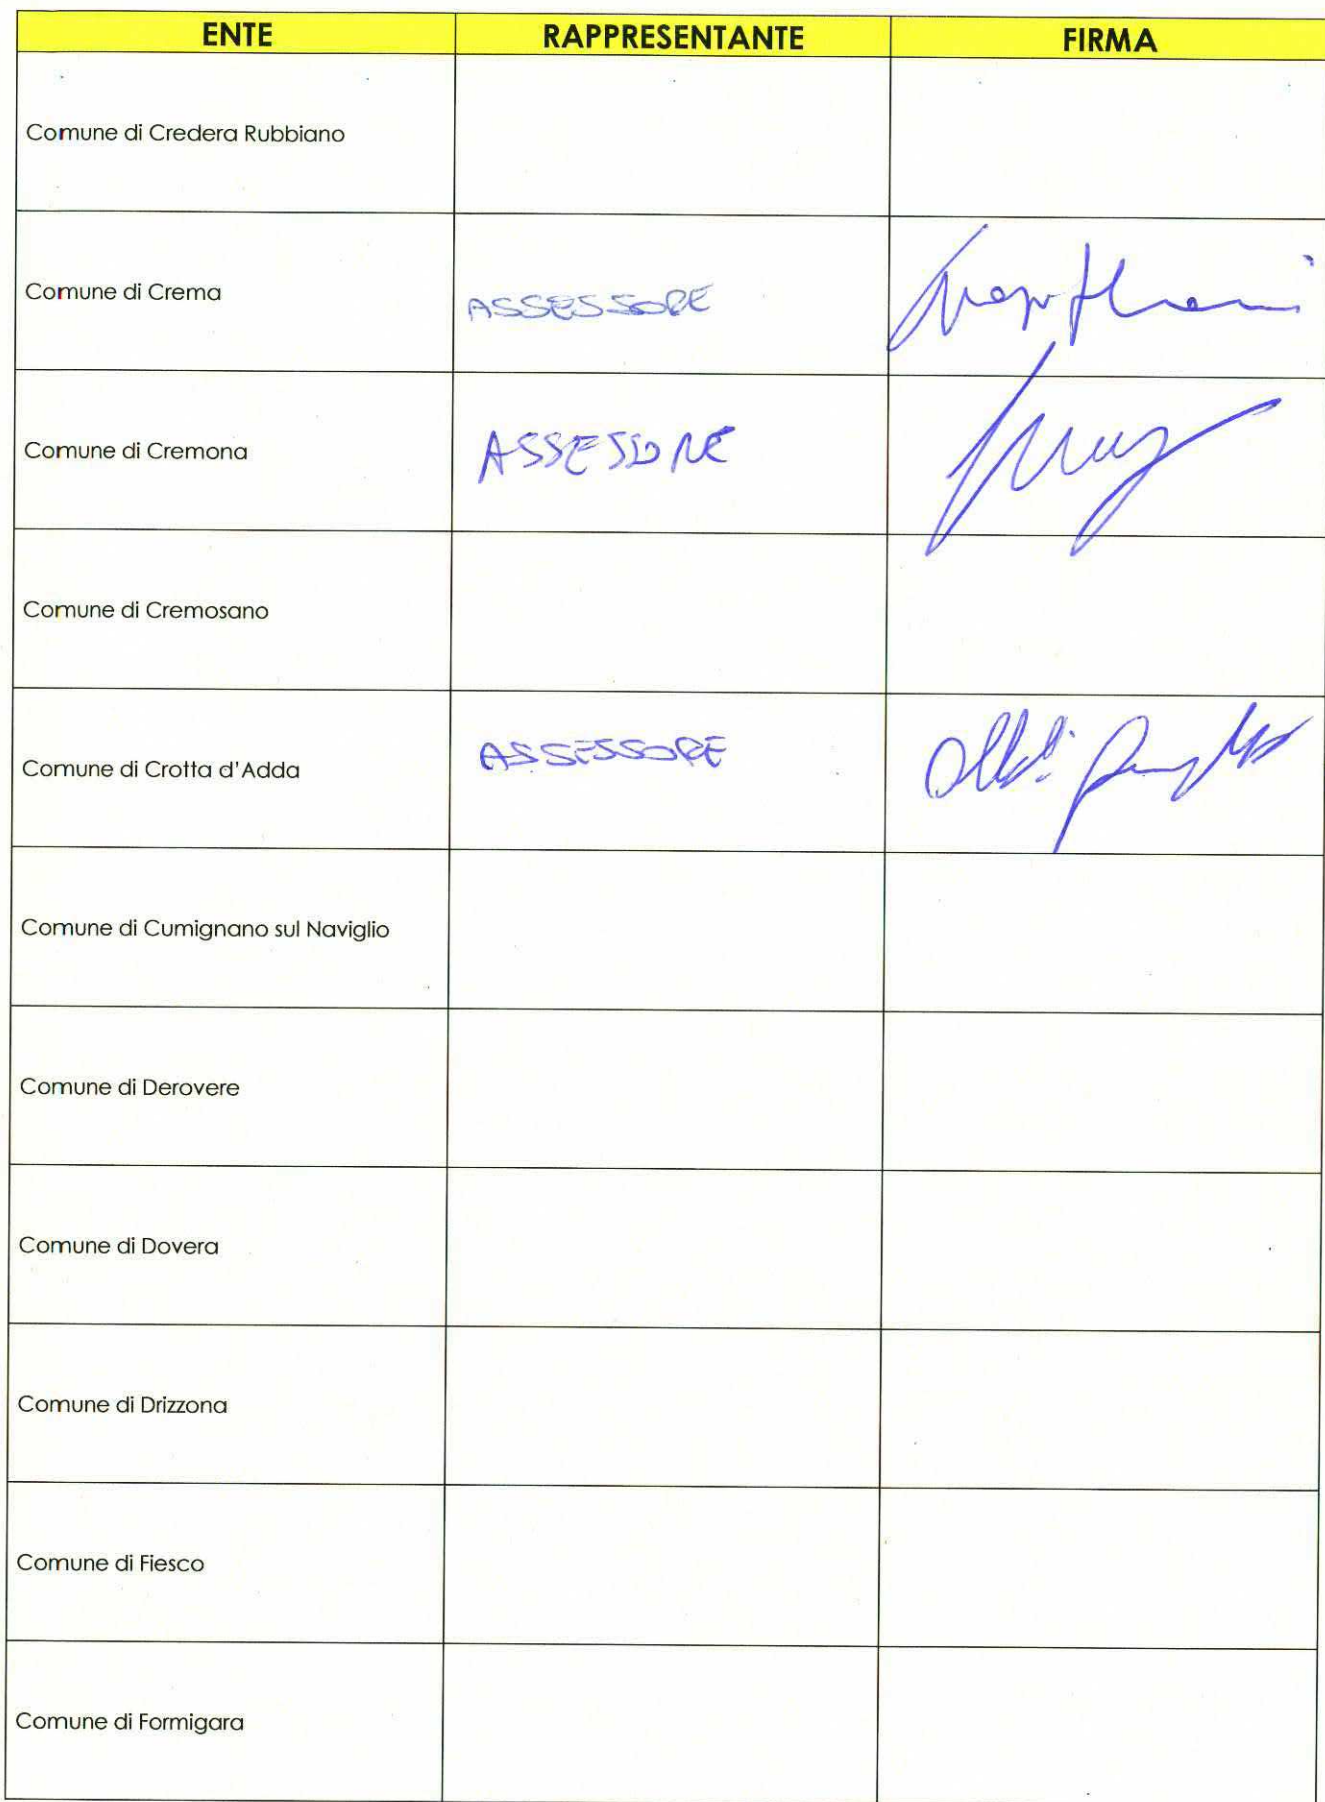 ENTE RAPPRESENTANTE FIRMA
Comune di Credera Rubbiano
Comune di Crema ASSESSORE
Comune di Cremona ASSESSORE
Comune di Cremosano
Comune di Crotta d'Adda ASSESSORE
Comune di Cumignano sul Naviglio
Comune di Derovere
Comune di Dovera
Comune di Drizzona
Comune di Fiesco
Comune di Formigara